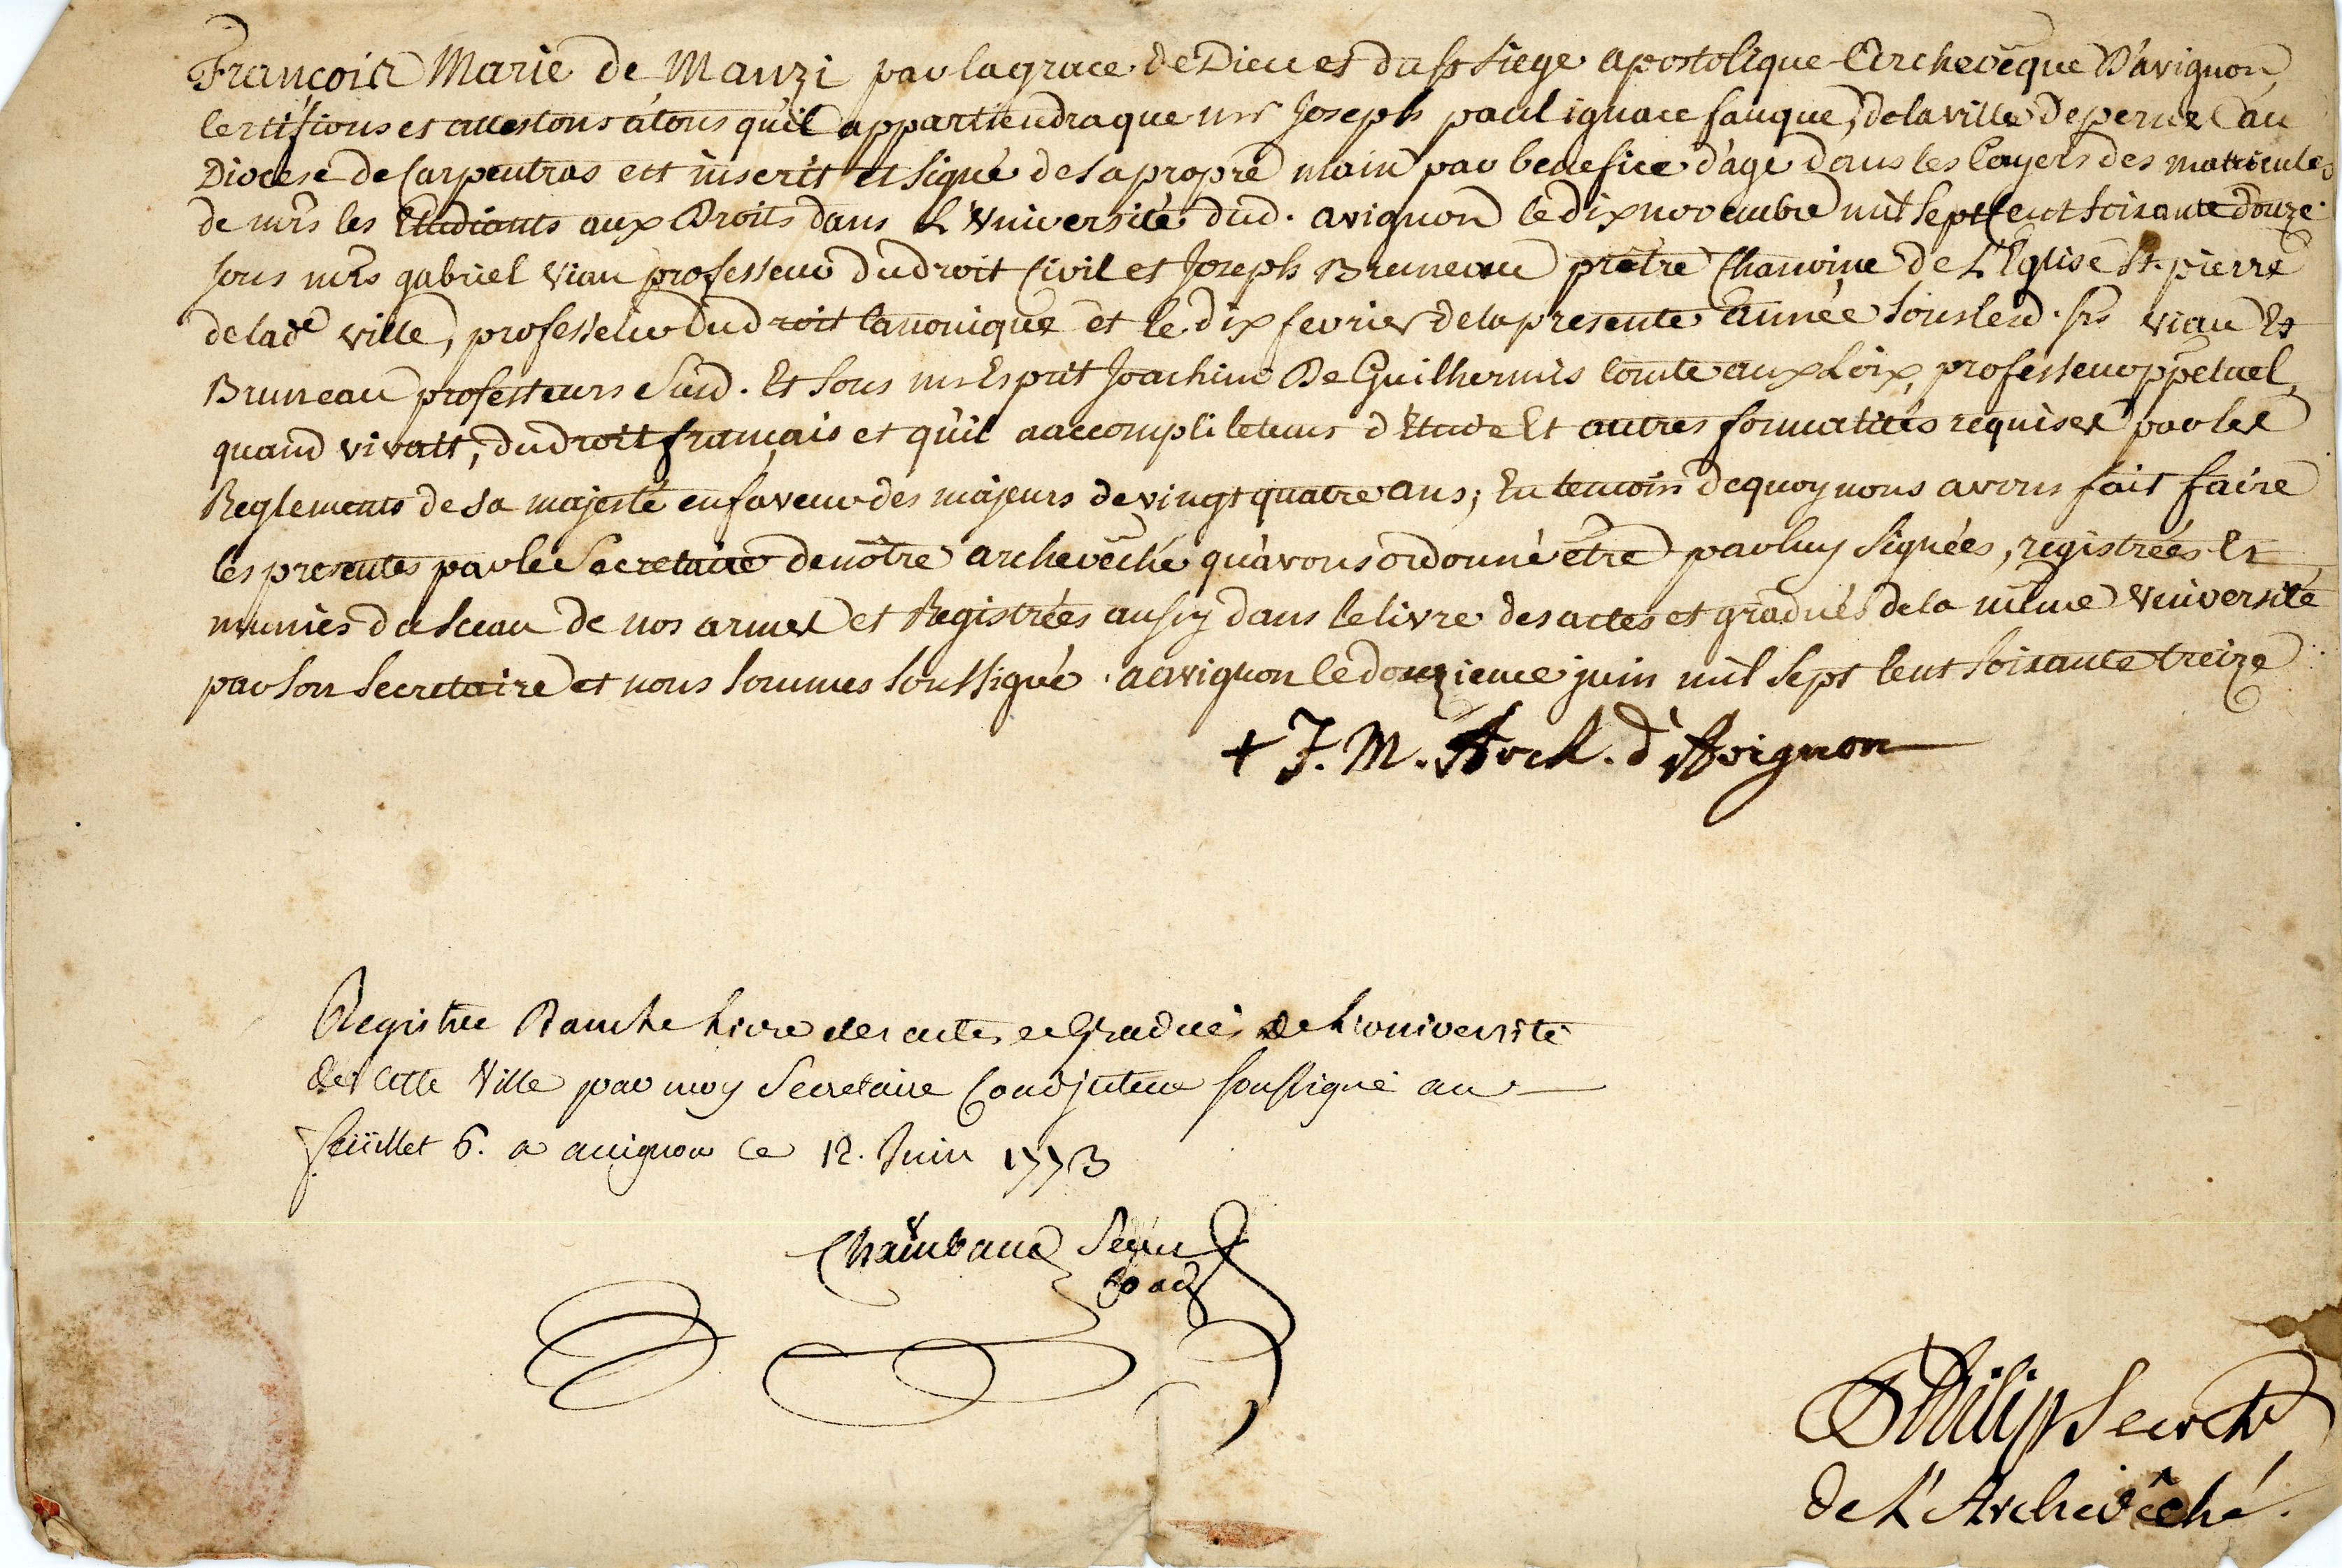 François Marie de Manzi par la grace de Dieu et du St Siege apostolique Archevêque D'avignon,
Certifions et attestons à tous qu'il appartiendra que mr Joseph paul ignace fauque, de la ville de pernes au
Diocese de Carpentras est inscrit et signé de sa propre main par benefice d'age dans les Cayers des matricules
de mrs les Etudiants aux Droits dans L'Université dud. avignon le dix novembre mil sept Cent soixante douze
sous mrs gabriel Viau professeur du droit Civil et Joseph Bruneau prêtre Chanoine de L'Eglise St. pierre
de lade ville, professeur du droit Canonique et le dix fevrier de la presente Année sous lesd. srs Viau Et
Bruneau professeurs susd. Et sous mr Esprit Joachim De Guilhermis Comte aux Loix, professeur ppétuel,
quand vivait, du droit français et qu'il a accompli le tems d'Etude Et autres formalités requises par les
Reglements de sa majesté en faveur des majeurs de vingt quatre ans; En temoin de quoy nous avons fait faire
les presentes par le Secretaire de nôtre archevêché qu'avons ordonné être par luy signées, registrées Et
munies du sceau de nos armes et Registrées aussy dans le livre des actes et gradués de la même Université
par son Secretaire et nous sommes soussigné. a avignon le douzieme juin mil sept Cent soixante treize
+ F. M. Arch. d'Avignon
Registrée dans le Livre des actes et Gradués de L'université
de Cette Ville par moy Secretaire Coadjuteur soussigné au
feüillet 6. a avignon ce 12. Juin 1773
Chaimbaud Secre
Coadj
Philip Secret
de L'Archevêché.